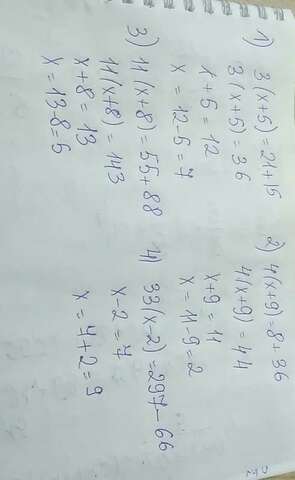 1) 3(x+5)=21+15
3(x+5)=36
x+5=12
x=12-5=7
2) 4(x+9)=8+36
4(x+9)=44
x+9=11
x=11-9=2
3) 11(x+8)=55+88
11(x+8)=143
x+8=13
x=13-8=5
4) 33(x-2)=297-66
x-2=7
x=7+2=9